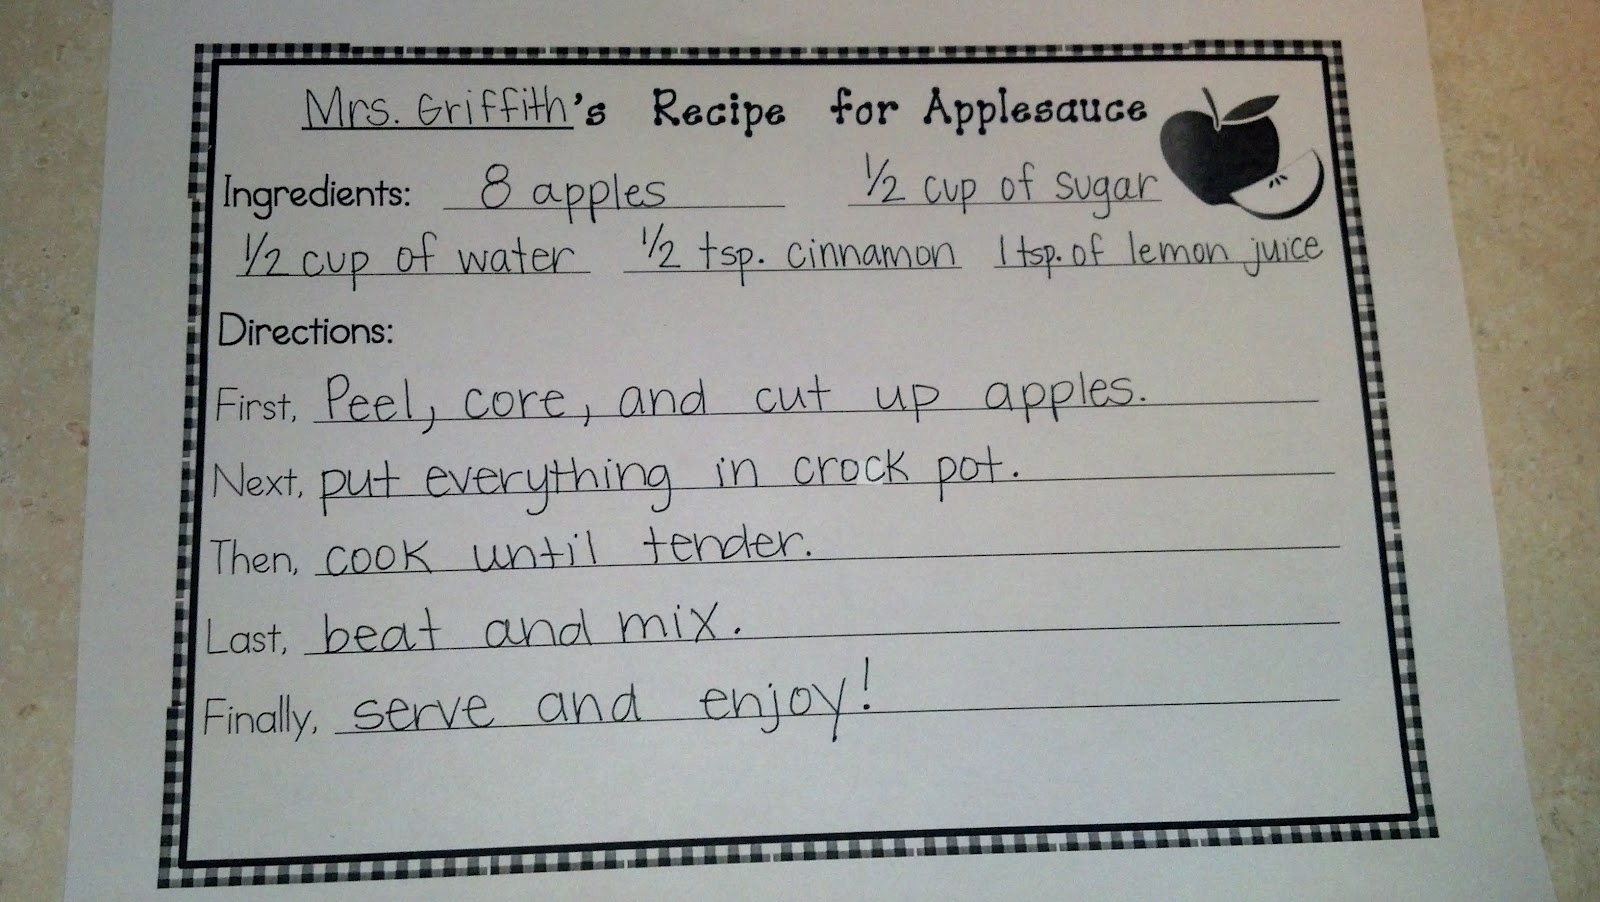 Mrs. Griffith's Recipe for Applesauce
Ingredients: 8 apples 1/2 cup of sugar
1/2 cup of water 1/2 tsp. cinnamon 1 tsp. of lemon juice
Directions:
First, Peel, core, and cut up apples.
Next, put everything in crock pot.
Then, cook until tender.
Last, beat and mix.
Finally, serve and enjoy!